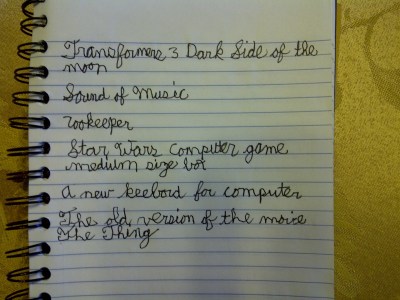 Transformers 3 Dark Side of the
moon
Sound of Music
Zookeeper
Star Wars computer game
medium size box
a new keebord for computer
The old version of the movie
The Thing